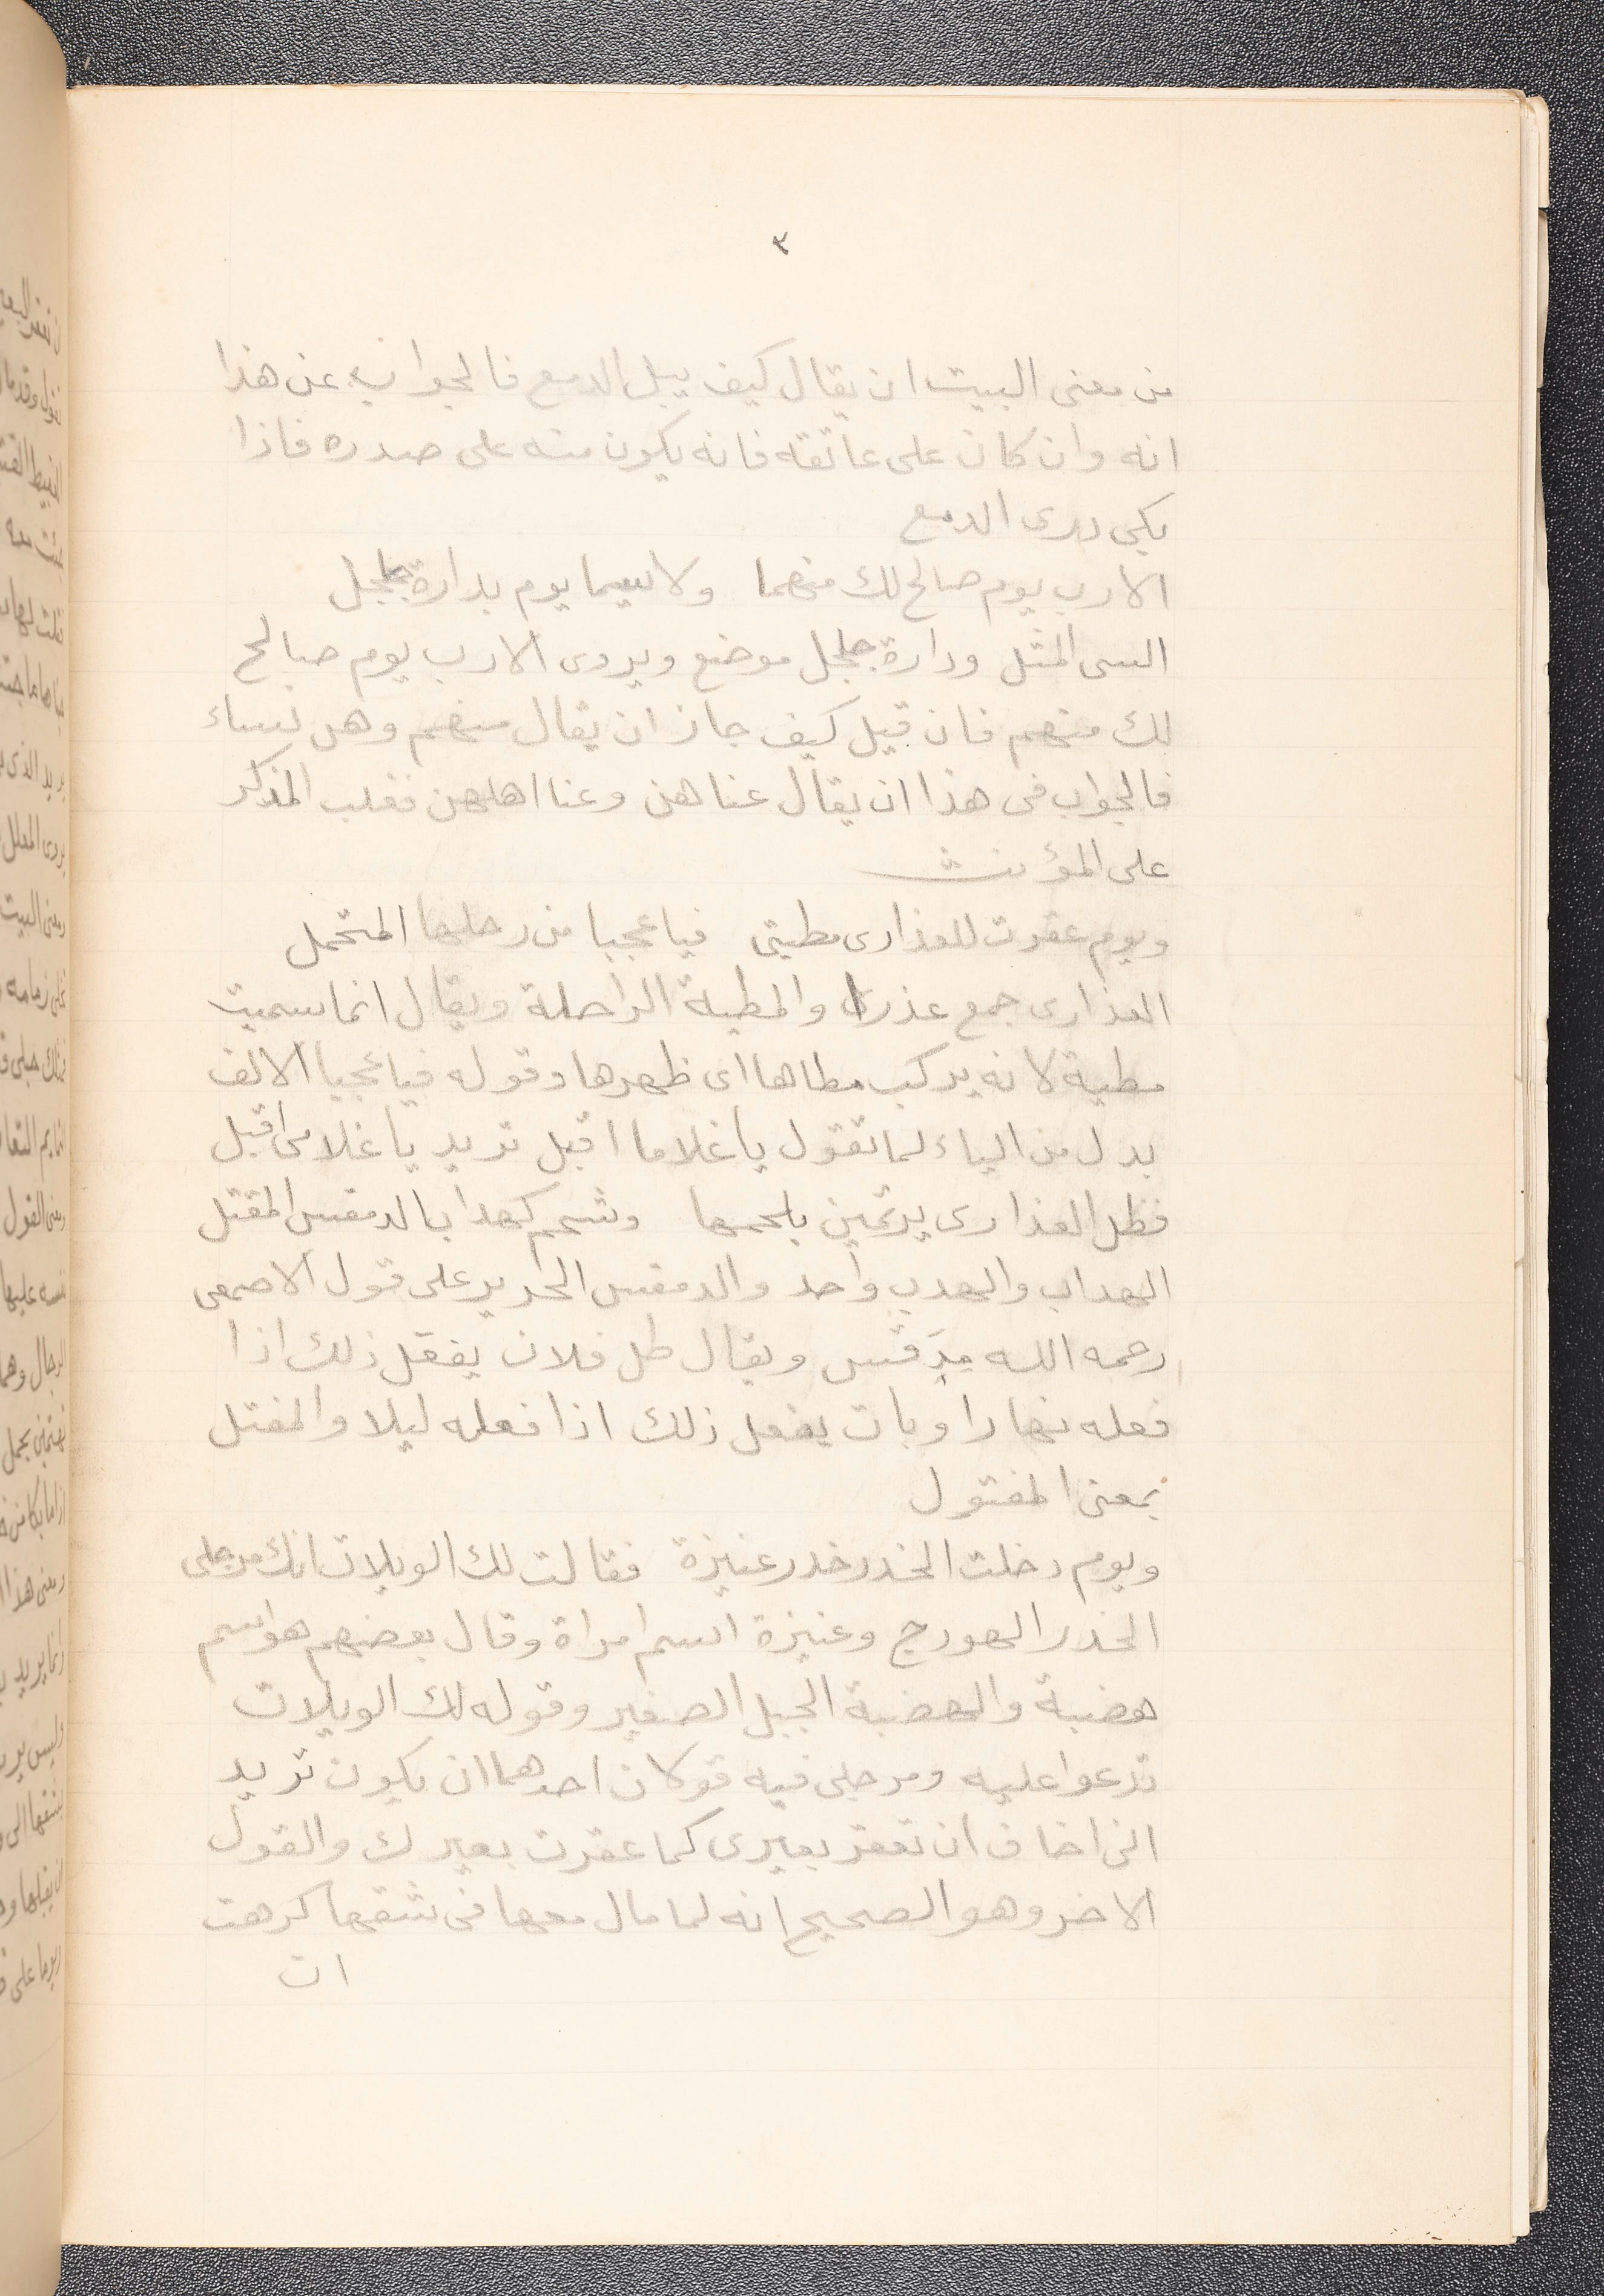 ٣
من معنى البيت ان يقال كيف يبل الدمع فالجواب عن هذا
انه وان كان على عاتقه فانه يكون منه على صدره فاذا
بكى جرى الدمع
الا رب يوم صالح لك منهما ولا سيما يوم بدارة جلجل
السى المثل ودارة جلجل موضع ويروى الا رب يوم صالح
لك منهم فان قيل كيف جاز ان يقال منهم وهن نساء
فالجواب فى هذا ان يقال عناهن وعنا اهلهن فغلب المذكر
على المؤنث
ويوم عقرت للعذارى مطيتى فيا عجبا من رحلها المتحمل
العذارى جمع عذرا والمطية الراحلة ويقال انما سميت
مطية لانه يركب مطاها اى ظهرها وقوله فيا عجبا الالف
بدل من الياء لما تقول يا غلاما اقبل تريد يا غلامى اقبل
فظل العذارى يرتمين بلحمها وشحم كهداب الدمقس المفتل
الهداب والهدب واحد والدمقس الحرير على قول الاصمعى
رحمه الله مدقس ويقال ظل فلان يفعل ذلك اذا
فعله نهارا وبات يفعل ذلك اذا فعله ليلا والمفتل
بمعنى المفتول
ويوم دخلت الخدر خدر عنيزة فقالت لك الويلات انك مرجلى
الخدر الهودج وعنيزة اسم امراة وقال بعضهم هو اسم
هضبة والهضبة الجبل الصغير وقوله لك الويلات
تدعوا عليه ومرجلى فيه قولان احدهما ان يكون تريد
انى اخاف ان تعقر بعيرى كما عقرت بعيرك والقول
الاخر وهو الصحيح انه لما مال معها فى شقها كرهت
ان